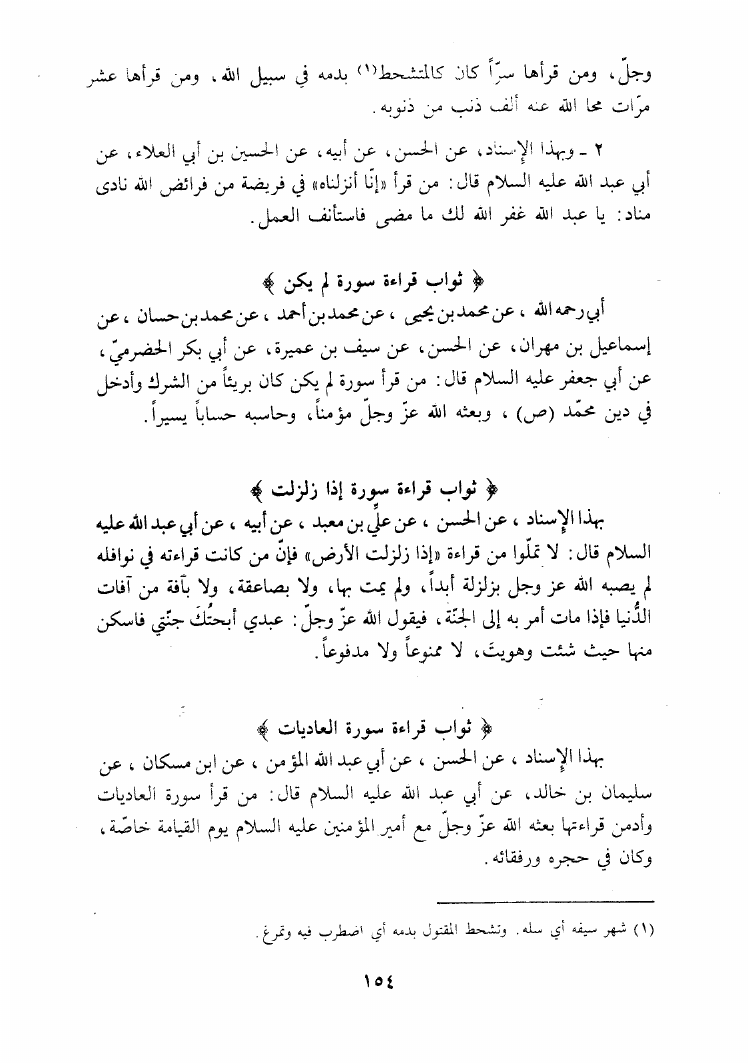 وجلّ، ومن قرأها سرّاً كان كالمتشحط(١) بدمه في سبيل الله، ومن قرأها عشر
مرّات محا الله عنه ألف ذنب من ذنوبه.
٢ ـ وبهذا الإسناد، عن الحسن، عن أبيه، عن الحسين بن أبي العلاء، عن
أبي عبد الله عليه السلام قال: من قرأ «إنّا أنزلناه» في فريضة من فرائض الله نادى
مناد: يا عبد الله غفر الله لك ما مضى فاستأنف العمل.
﴿ ثواب قراءة سورة لم يكن ﴾
أبي رحمه الله، عن محمد بن يحيى، عن محمد بن أحمد، عن محمد بن حسان، عن
إسماعيل بن مهران، عن الحسن، عن سيف بن عميرة، عن أبي بكر الحضرميّ،
عن أبي جعفر عليه السلام قال: من قرأ سورة لم يكن كان بريئاً من الشرك وأدخل
في دين محمّد (ص)، وبعثه الله عزّ وجلّ مؤمناً، وحاسبه حساباً يسيراً.
﴿ ثواب قراءة سورة إذا زلزلت ﴾
بهذا الإسناد، عن الحسن، عن عليِّ بن معبد، عن أبيه، عن أبي عبد الله عليه
السلام قال: لا تملّوا من قراءة «إذا زلزلت الأرض» فإنّ من كانت قراءته في نوافله
لم يصبه الله عز وجل بزلزلة أبداً، ولم يمت بها، ولا بصاعقة، ولا بآفة من آفات
الدُّنيا فإذا مات أمر به إلى الجنّة، فيقول الله عزّ وجلّ: عبدي أبحتُكَ جنّتي فاسكن
منها حيث شئت وهويتَ، لا ممنوعاً ولا مدفوعاً.
﴿ ثواب قراءة سورة العاديات ﴾
بهذا الإسناد، عن الحسن، عن أبي عبد الله المؤمن، عن ابن مسكان، عن
سليمان بن خالد، عن أبي عبد الله عليه السلام قال: من قرأ سورة العاديات
وأدمن قراءتها بعثه الله عزّ وجلّ مع أمير المؤمنين عليه السلام يوم القيامة خاصّة،
وكان في حجره ورفقائه.
(١) شهر سيفه أي سله. وتشحط المقتول بدمه أي اضطرب فيه وتمرغ.
١٥٤